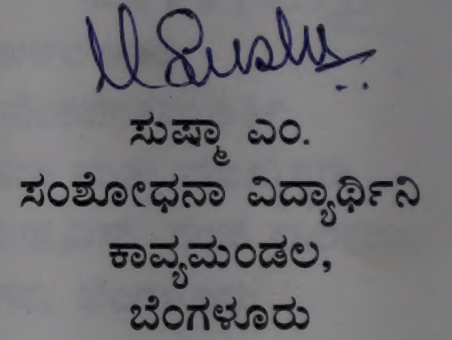 ಸುಷ್ಮಾ ಎಂ.
ಸಂಶೋಧನಾ ವಿದ್ಯಾರ್ಥಿನಿ
ಕಾವ್ಯಮಂಡಲ,
ಬೆಂಗಳೂರು